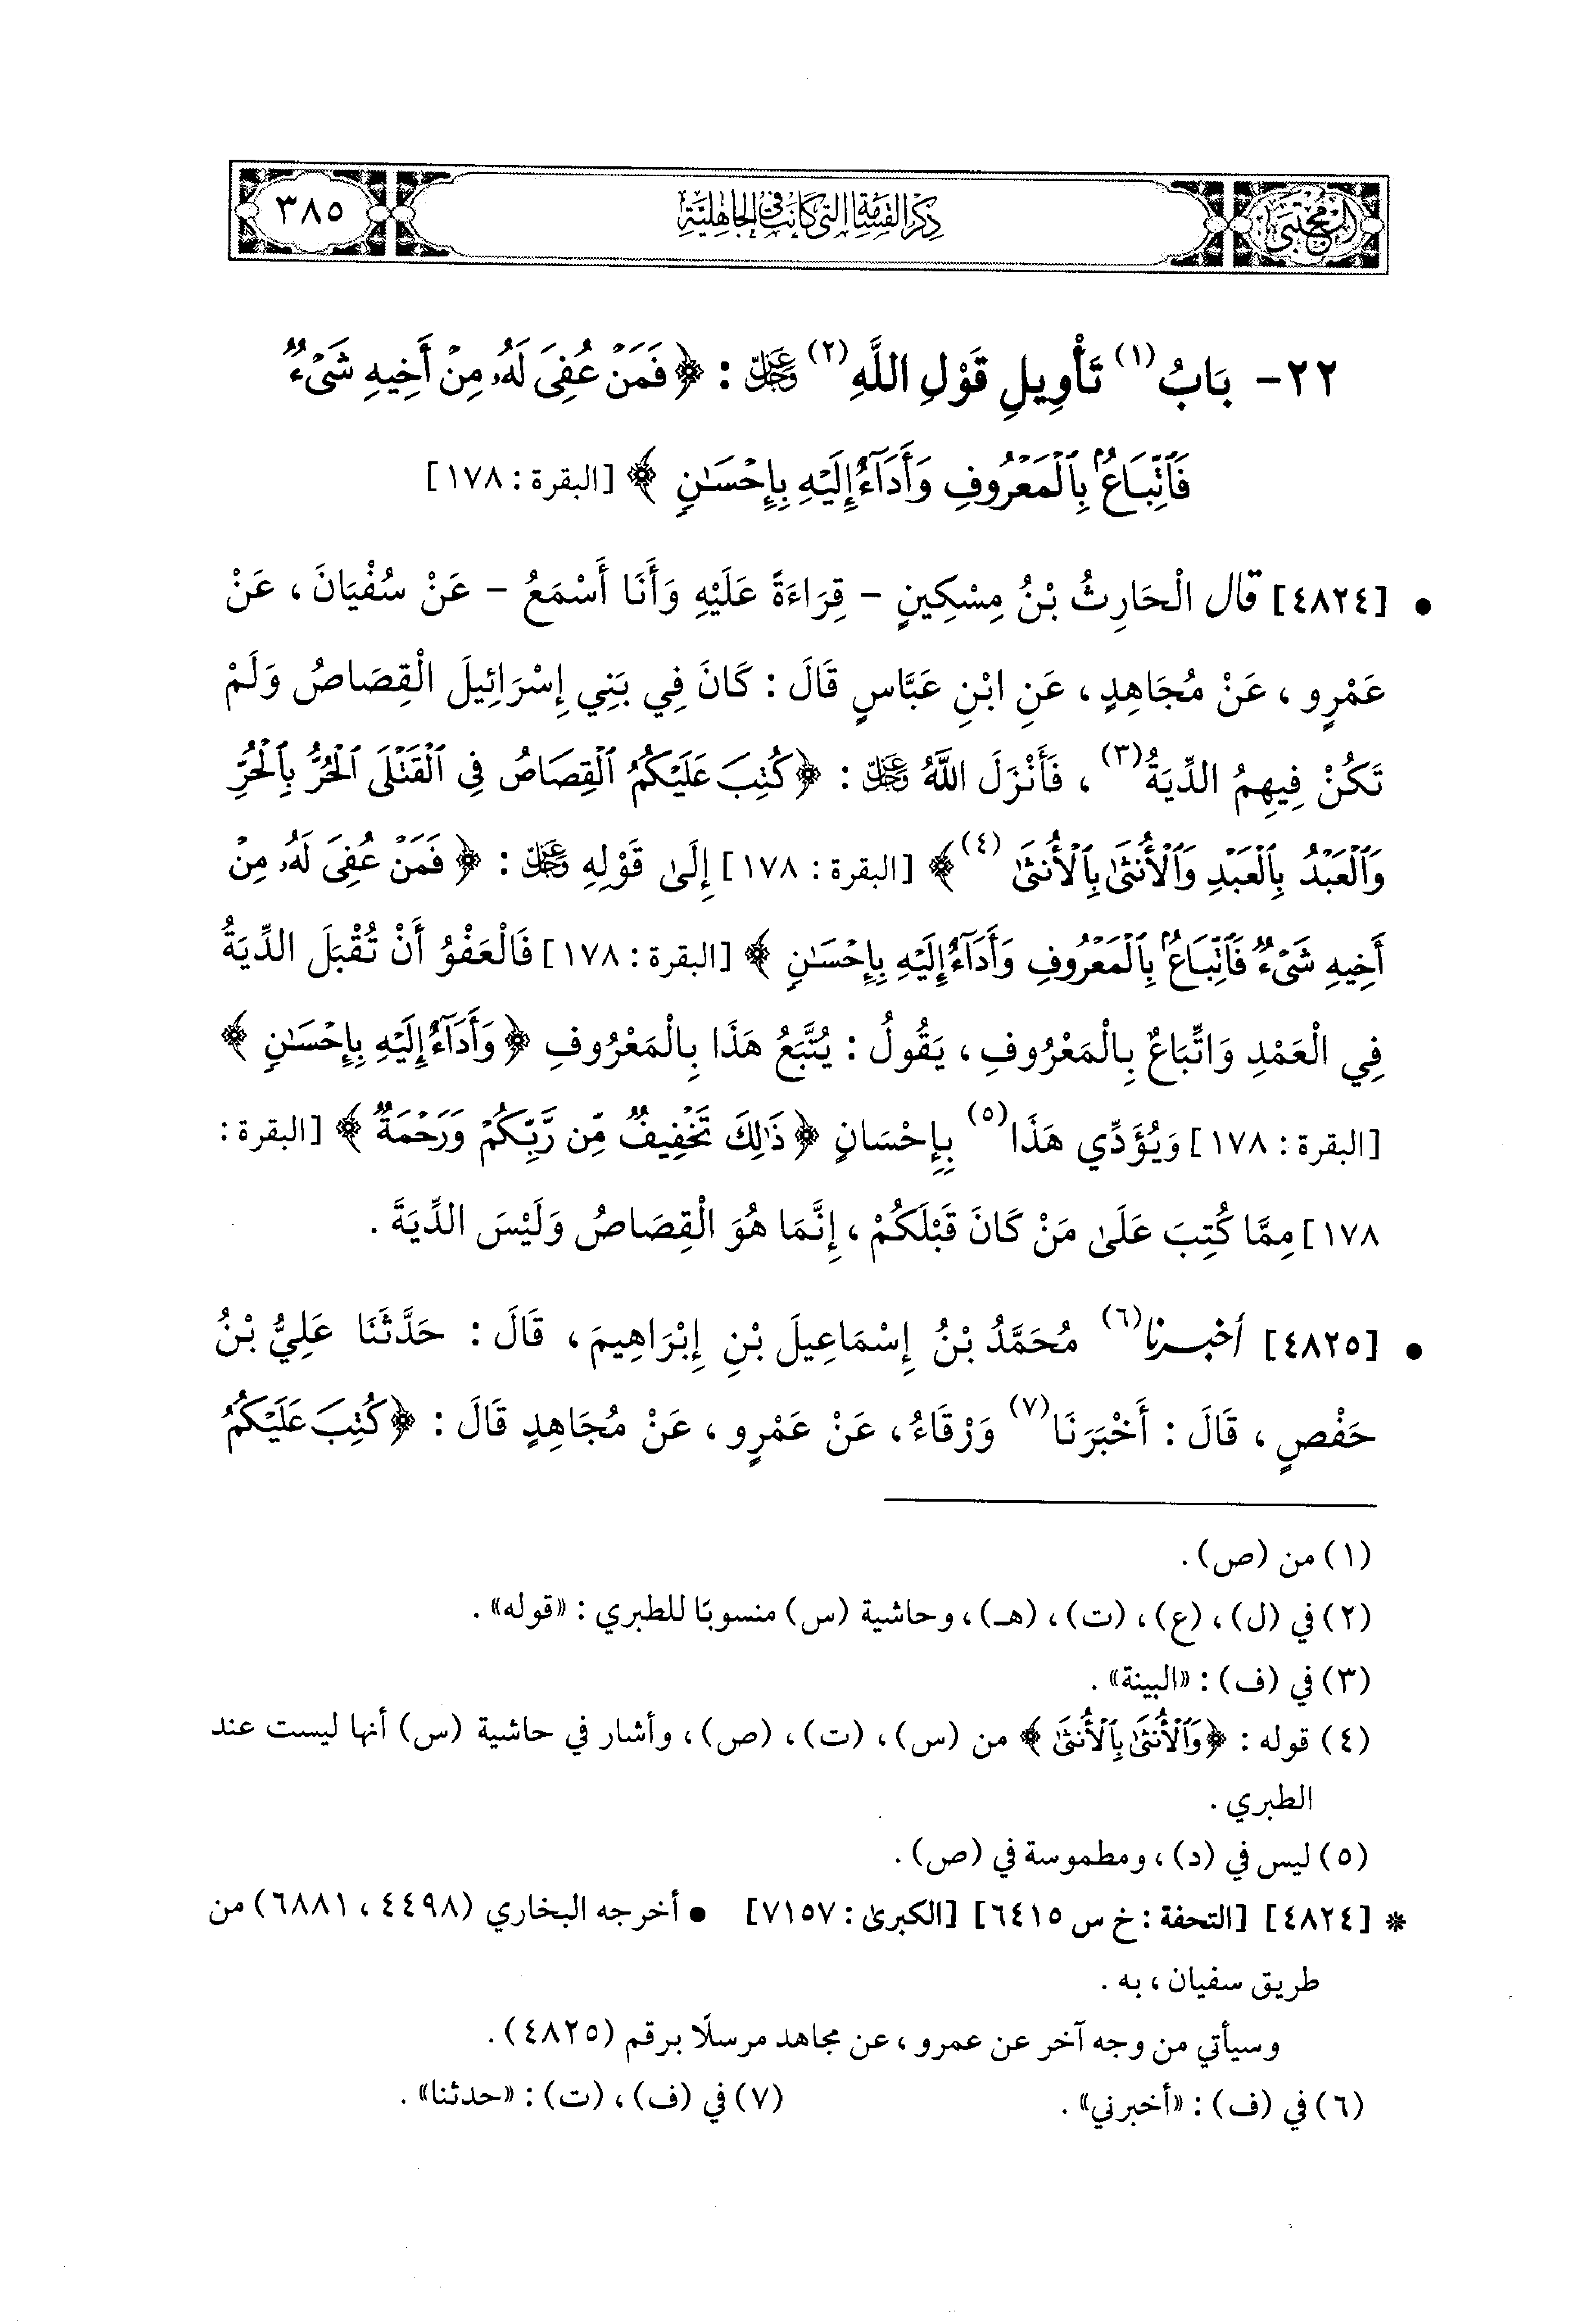 المجتبى
ذكر القسامة التي كانت في الجاهلية
٣٨٥
٢٢- بَابُ(١) تَأْوِيلِ قَوْلِ اللَّهِ(٢) عَزَّ وَجَلَّ : ﴿ فَمَنْ عُفِيَ لَهُۥ مِنْ أَخِيهِ شَىْءٌ
فَٱتِّبَاعٌۢ بِٱلْمَعْرُوفِ وَأَدَآءٌ إِلَيْهِ بِإِحْسَـٰنٍ ﴾ [البقرة : ١٧٨]
• [٤٨٢٤] قال الْحَارِثُ بْنُ مِسْكِينٍ - قِرَاءَةً عَلَيْهِ وَأَنَا أَسْمَعُ - عَنْ سُفْيَانَ ، عَنْ
عَمْرٍو ، عَنْ مُجَاهِدٍ ، عَنِ ابْنِ عَبَّاسٍ قَالَ : كَانَ فِي بَنِي إِسْرَائِيلَ الْقِصَاصُ وَلَمْ
تَكُنْ فِيهِمُ الدِّيَةُ(٣) ، فَأَنْزَلَ اللَّهُ عَزَّ وَجَلَّ : ﴿ كُتِبَ عَلَيْكُمُ ٱلْقِصَاصُ فِى ٱلْقَتْلَى ٱلْحُرُّ بِٱلْحُرِّ
وَٱلْعَبْدُ بِٱلْعَبْدِ وَٱلْأُنثَىٰ بِٱلْأُنثَىٰ (٤)﴾ [البقرة : ١٧٨] إِلَىٰ قَوْلِهِ عَزَّ وَجَلَّ : ﴿ فَمَنْ عُفِيَ لَهُۥ مِنْ
أَخِيهِ شَىْءٌ فَٱتِّبَاعٌۢ بِٱلْمَعْرُوفِ وَأَدَآءٌ إِلَيْهِ بِإِحْسَـٰنٍ ﴾ [البقرة : ١٧٨] فَالْعَفْوُ أَنْ تُقْبَلَ الدِّيَةُ
فِي الْعَمْدِ وَاتِّبَاعٌ بِالْمَعْرُوفِ ، يَقُولُ : يُتَّبَعُ هَذَا بِالْمَعْرُوفِ ﴿ وَأَدَآءٌ إِلَيْهِ بِإِحْسَـٰنٍ ﴾
[البقرة : ١٧٨] وَيُؤَدِّي هَذَا(٥) بِإِحْسَانٍ ﴿ ذَٰلِكَ تَخْفِيفٌ مِّن رَّبِّكُمْ وَرَحْمَةٌ ﴾ [البقرة :
١٧٨] مِمَّا كُتِبَ عَلَىٰ مَنْ كَانَ قَبْلَكُمْ ، إِنَّمَا هُوَ الْقِصَاصُ وَلَيْسَ الدِّيَةَ .
• [٤٨٢٥] أخبرنا(٦) مُحَمَّدُ بْنُ إِسْمَاعِيلَ بْنِ إِبْرَاهِيمَ ، قَالَ : حَدَّثَنَا عَلِيُّ بْنُ
حَفْصٍ ، قَالَ : أَخْبَرَنَا(٧) وَرْقَاءُ ، عَنْ عَمْرٍو ، عَنْ مُجَاهِدٍ قَالَ : ﴿ كُتِبَ عَلَيْكُمُ
(١) من (ص) .
(٢) في (ل) ، (ع) ، (ت) ، (هـ) ، وحاشية (س) منسوبًا للطبري : «قوله» .
(٣) في (ف) : «البينة» .
(٤) قوله : ﴿ وَٱلْأُنثَىٰ بِٱلْأُنثَىٰ ﴾ من (س) ، (ت) ، (ص) ، وأشار في حاشية (س) أنها ليست عند
الطبري .
(٥) ليس في (د) ، ومطموسة في (ص) .
* [٤٨٢٤] [التحفة : خ س ٦٤١٥] [الكبرى : ٧١٥٧] • أخرجه البخاري (٤٤٩٨ ، ٦٨٨١) من
طريق سفيان ، به .
وسيأتي من وجه آخر عن عمرو ، عن مجاهد مرسلًا برقم (٤٨٢٥) .
(٦) في (ف) : «أخبرني» . (٧) في (ف) ، (ت) : «حدثنا» .